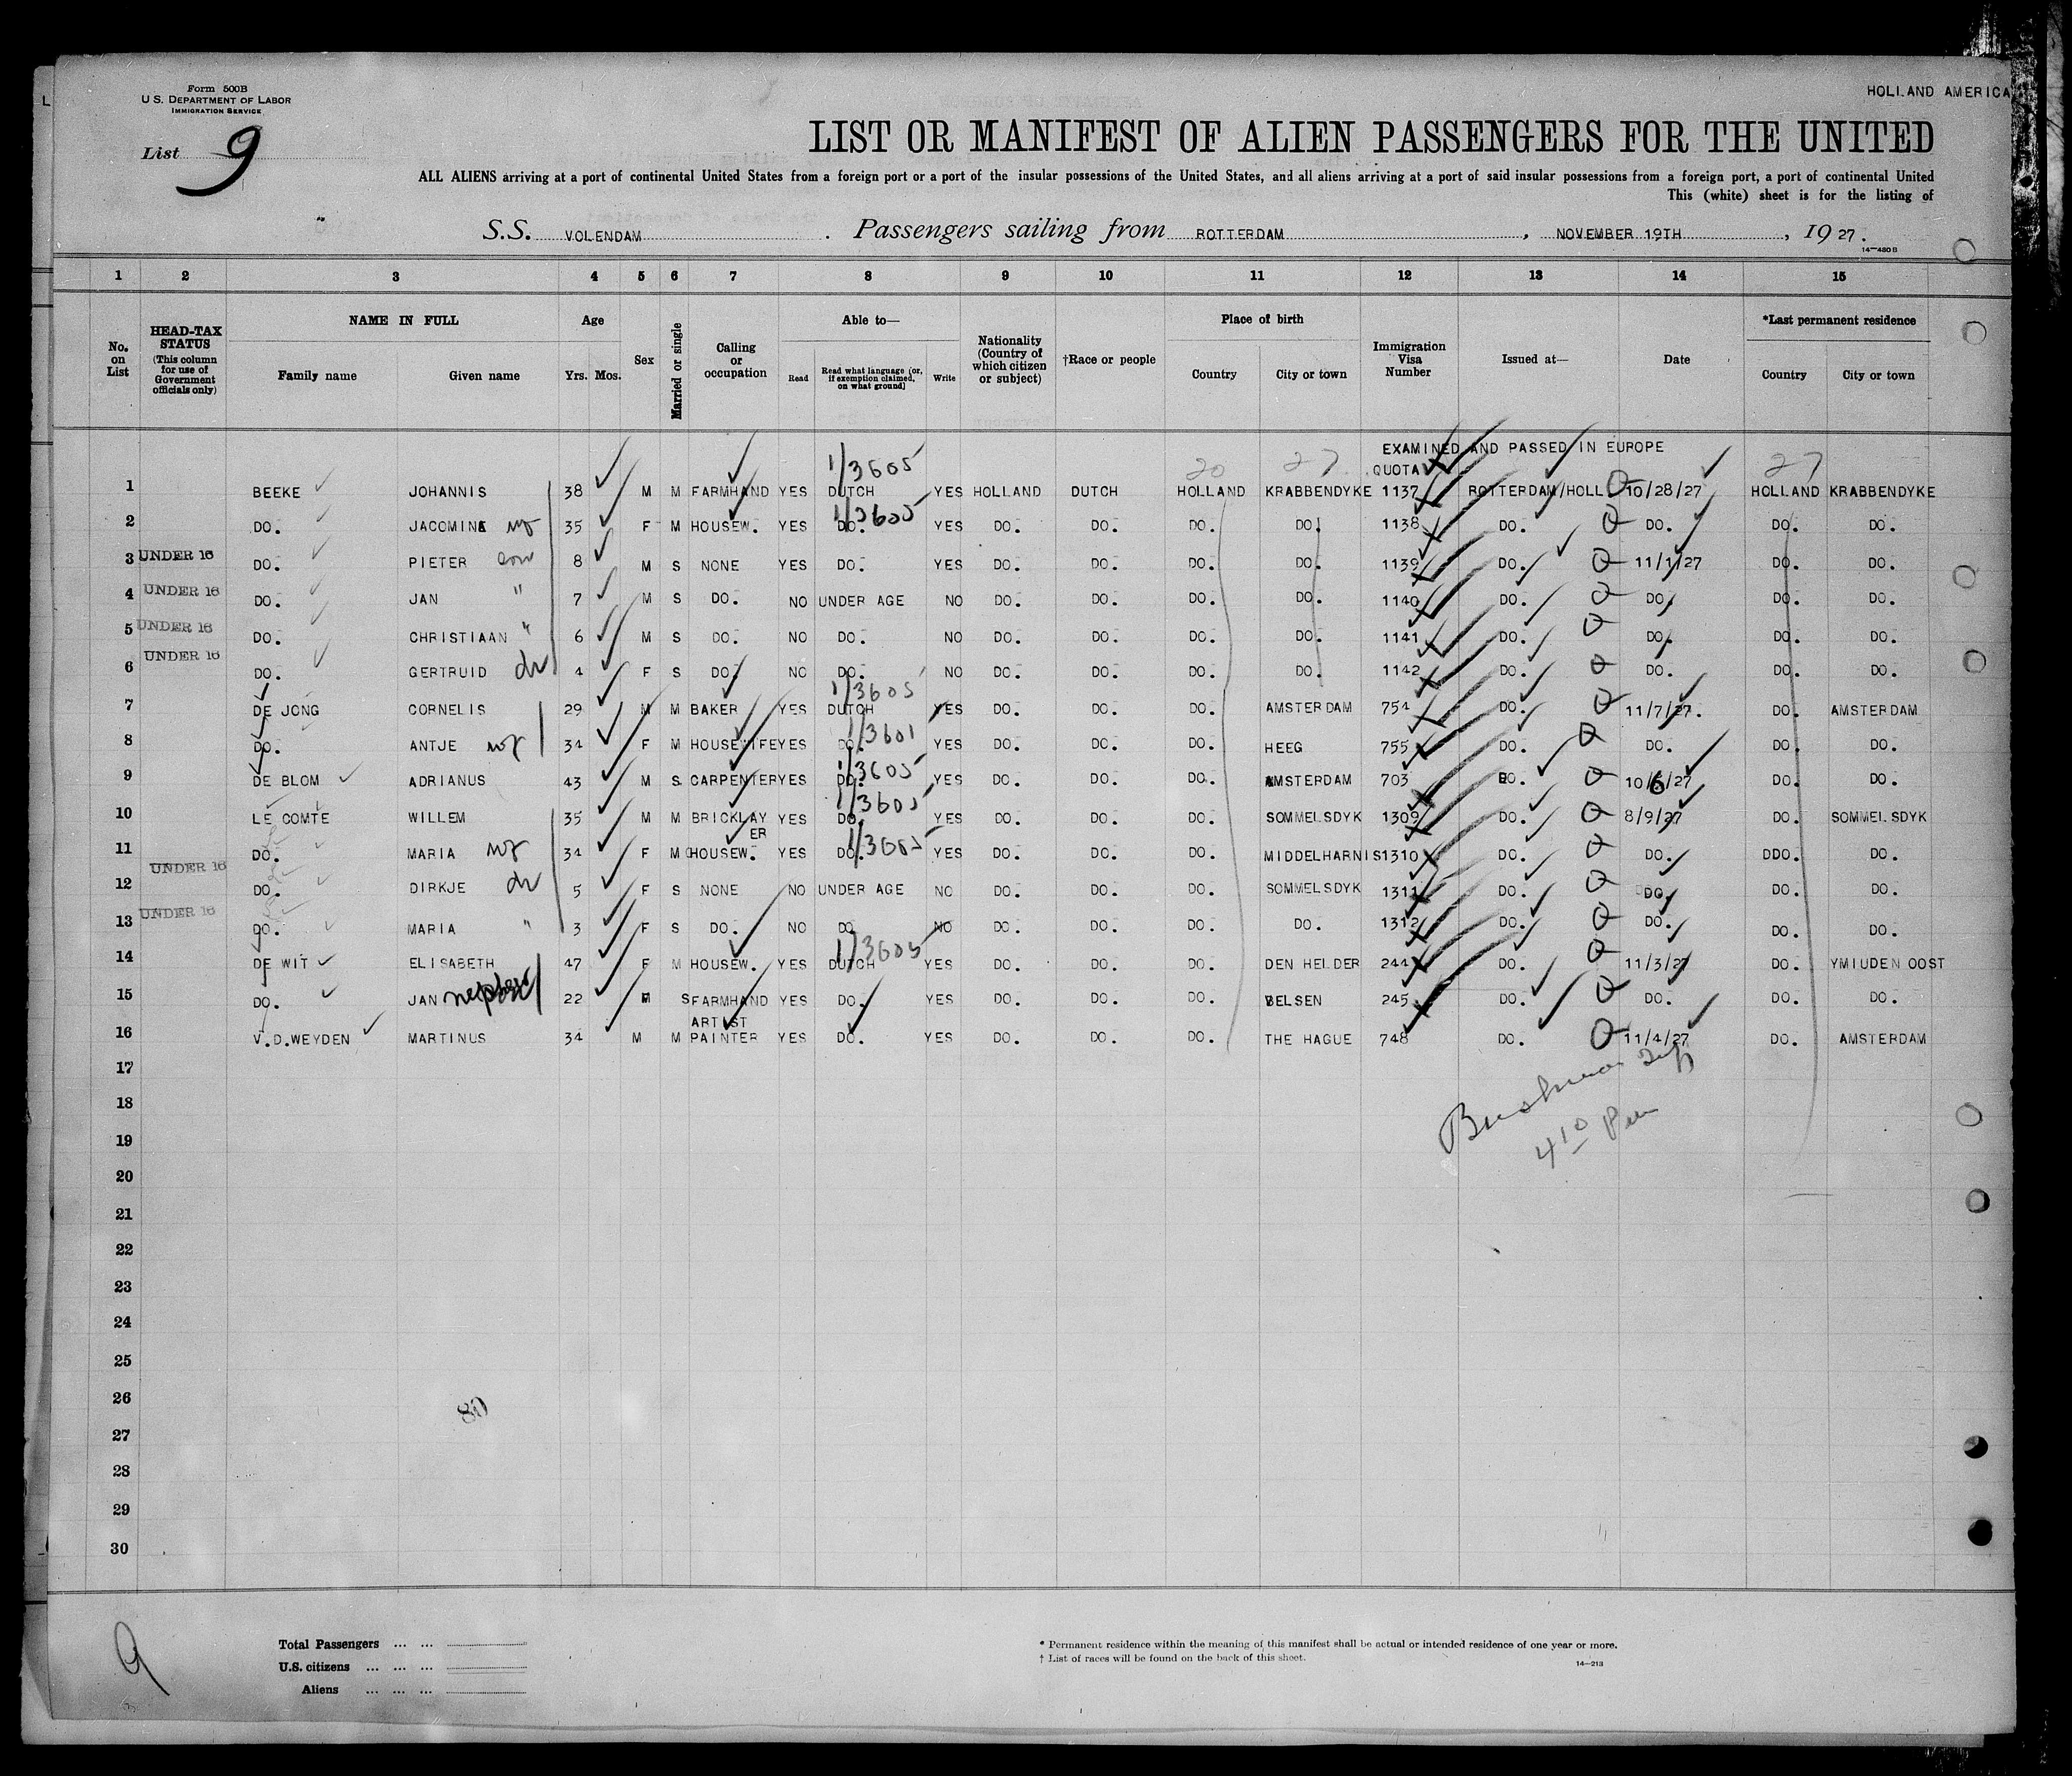 Form 500B
U.S. DEPARTMENT OF LABOR
IMMIGRATION SERVICE
HOLLAND AMERICA
List 9
LIST OR MANIFEST OF ALIEN PASSENGERS FOR THE UNITED
ALL ALIENS arriving at a port of continental United States from a foreign port or a port of the insular possessions of the United States, and all aliens arriving at a port of said insular possessions from a foreign port, a port of continental United
This (white) sheet is for the listing of
S.S. VOLENDAM. Passengers sailing from ROTTERDAM, NOVEMBER 19TH, 1927.
14-480B
1 2 3 4 5 6 7 8 9 10 11 12 13 14 15
No. on List
HEAD-TAX STATUS (This column for use of Government officials only)
NAME IN FULL Family name Given name
Age Yrs. Mos.
Sex
Married or single
Calling or occupation
Able to— Read Read what language (or, if exemption claimed, on what ground) Write
Nationality (Country of which citizen or subject)
†Race or people
Place of birth Country City or town
Immigration Visa Number
Issued at—
Date
*Last permanent residence Country City or town
EXAMINED AND PASSED IN EUROPE
1/3605 20 27 QUOTA 27
1 BEEKE JOHANNIS 38 M M FARMHAND YES DUTCH YES HOLLAND DUTCH HOLLAND KRABBENDYKE 1137 ROTTERDAM/HOLL Q 10/28/27 HOLLAND KRABBENDYKE
1/3605
2 DO. JACOMINE wf 35 F M HOUSEW. YES DO. YES DO. DO. DO. DO. 1138 DO. Q DO. DO. DO.
3 UNDER 16 DO. PIETER son 8 M S NONE YES DO. YES DO. DO. DO. DO. 1139 DO. Q 11/1/27 DO. DO.
4 UNDER 16 DO. JAN " 7 M S DO. NO UNDER AGE NO DO. DO. DO. DO. 1140 DO. Q DO. DO. DO.
5 UNDER 16 DO. CHRISTIAAN " 6 M S DO. NO DO. NO DO. DO. DO. DO. 1141 DO. Q DO. DO. DO.
6 UNDER 16 DO. GERTRUID dr 4 F S DO. NO DO. NO DO. DO. DO. DO. 1142 DO. Q DO. DO. DO.
1/3605
7 DE JONG CORNELIS 29 M M BAKER YES DUTCH YES DO. DO. DO. AMSTERDAM 754 DO. Q 11/7/27. DO. AMSTERDAM
1/3601
8 DO. ANTJE wf 34 F M HOUSEWIFE YES DO. YES DO. DO. DO. HEEG 755 DO. Q DO. DO. DO.
1/3605
9 DE BLOM ADRIANUS 43 M S CARPENTER YES DO. YES DO. DO. DO. AMSTERDAM 703 DO. Q 10/6/27 DO. DO.
1/3605
10 LE COMTE WILLEM 35 M M BRICKLAYER YES DO. YES DO. DO. DO. SOMMELSDYK 1309 DO. Q 8/9/27 DO. SOMMELSDYK
1/3605
11 DO. MARIA wf 34 F M HOUSEW. YES DO. YES DO. DO. DO. MIDDELHARNIS 1310 DO. Q DO. DDO. DO.
12 UNDER 16 DO. DIRKJE dr 5 F S NONE NO UNDER AGE NO DO. DO. DO. SOMMELSDYK 1311 DO. Q DO. DO. DO.
13 UNDER 16 DO. MARIA " 3 F S DO. NO DO. NO DO. DO. DO. DO. 1312 DO. Q DO. DO. DO.
1/3605
14 DE WIT ELISABETH 47 F M HOUSEW. YES DUTCH YES DO. DO. DO. DEN HELDER 244 DO. Q 11/3/27 DO. YMIUDEN OOST
15 DO. JAN nephew 22 M S FARMHAND YES DO. YES DO. DO. DO. VELSEN 245 DO. Q DO. DO. DO.
16 V.D.WEYDEN MARTINUS 34 M M ARTIST PAINTER YES DO. YES DO. DO. DO. THE HAGUE 748 DO. Q 11/4/27 DO. AMSTERDAM
17
18
19
20
21
22
23
24
25
26
27
28
29
30
410
80
9
Total Passengers ... ...
U.S. citizens ... ... ...
Aliens ... ... ...
* Permanent residence within the meaning of this manifest shall be actual or intended residence of one year or more.
† List of races will be found on the back of this sheet.
14-213